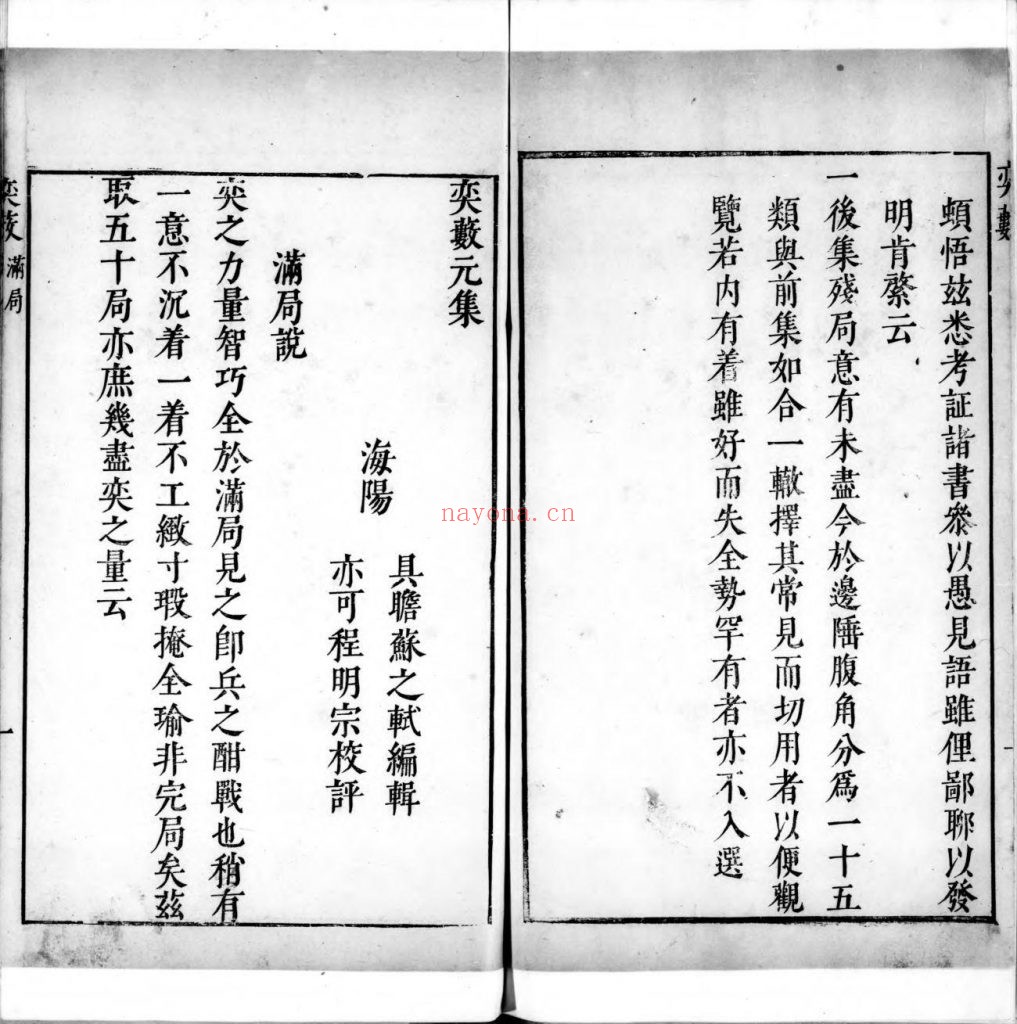 頓悟玆悉考証諸書叅以愚見語雖俚鄙聊以發
明肯綮云
一後集殘局意有未盡今於邊陲腹角分爲一十五
類與前集如合一轍擇其常見而切用者以便觀
覽若内有着雖好而失全勢罕有者亦不入選
奕藪元集
海陽
具瞻蘇之軾編輯
亦可程明宗校評
滿局說
奕之力量智巧全於滿局見之卽兵之酣戰也稍有
一意不沉着一着不工緻寸瑕掩全瑜非完局矣茲
取五十局亦庶幾盡奕之量云
奕藪 滿局
一
nayona.cn